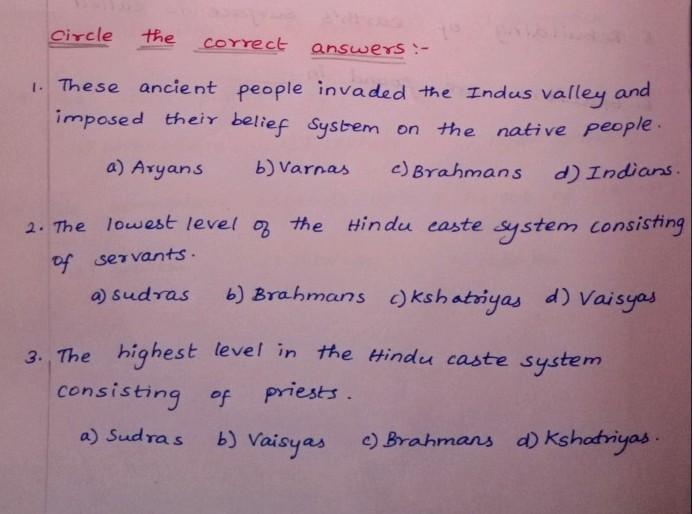 Circle the correct answers :-
1. These ancient people invaded the Indus valley and
imposed their belief System on the native people.
a) Aryans b) Varnas c) Brahmans d) Indians.
2. The lowest level of the Hindu caste system consisting
of servants.
a) sudras b) Brahmans c) Kshatriyas d) Vaisyas
3. The highest level in the Hindu caste system
consisting of priests.
a) Sudras b) Vaisyas c) Brahmans d) Kshatriyas.